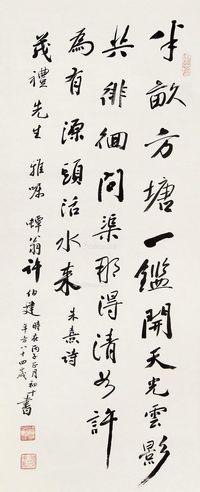 半畝方塘一鑑開天光雲影
共徘徊問渠那得清如許
為有源頭活水來 朱熹詩
茂禮先生雅囑 蟫翁許伯建 時在丙子正月初十 年方八十四歲 書